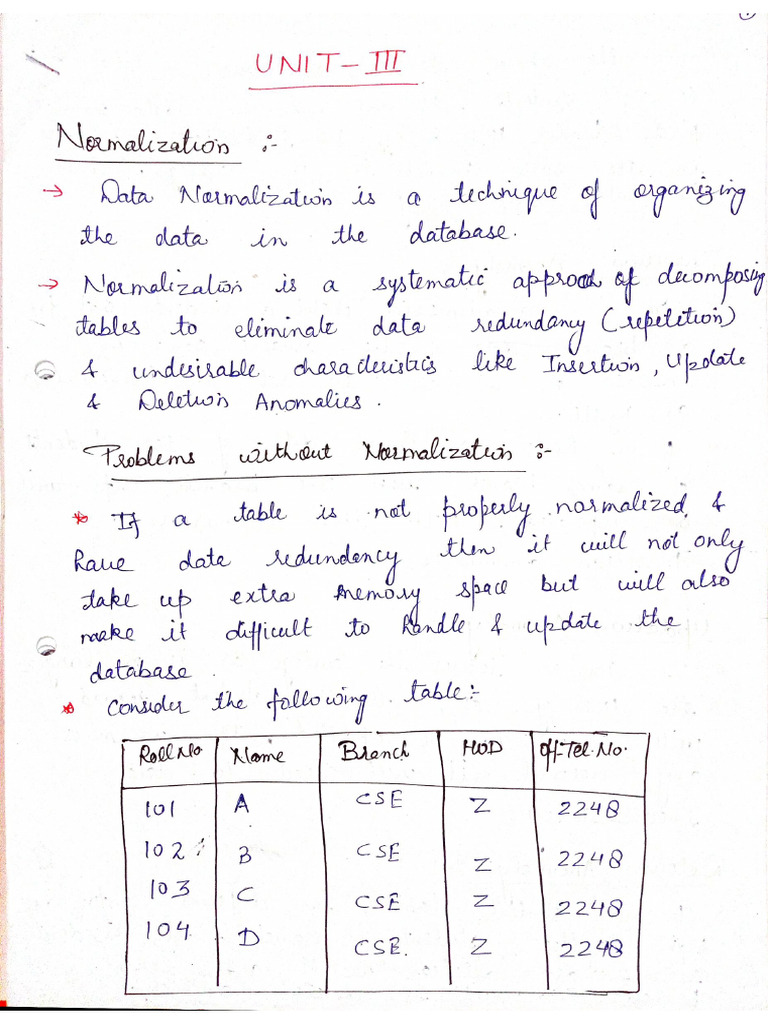 UNIT-III
Normalization :-
→ Data Normalization is a technique of organizing
the data in the database.
→ Normalization is a systematic approach of decomposing
tables to eliminate data redundancy (repetition)
& undesirable characteristics like Insertion, Update
& Deletion Anomalies.
Problems without Normalization :-
* If a table is not properly normalized &
have data redundancy then it will not only
take up extra memory space but will also
make it difficult to handle & update the
database.
* Consider the following table:-
Roll No Name Branch HOD Off.Tel.No.
101 A CSE Z 2248
102 B CSE Z 2248
103 C CSE Z 2248
104 D CSE. Z 2248